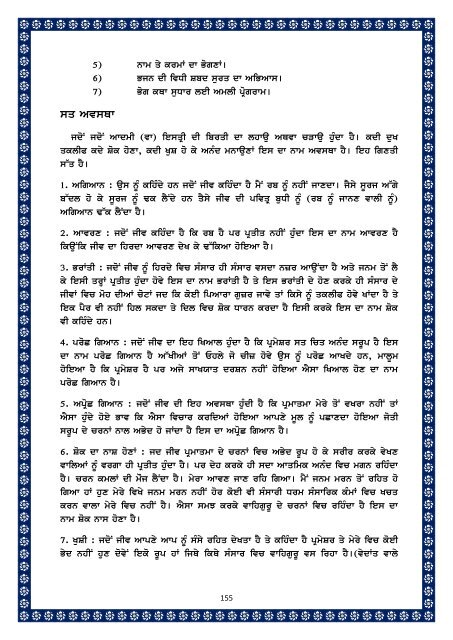 5) ਨਾਮ ਤੇ ਕਰਮਾਂ ਦਾ ਭੋਗਣਾਂ।
6) ਭਜਨ ਦੀ ਵਿਧੀ ਸ਼ਬਦ ਸੁਰਤ ਦਾ ਅਭਿਆਸ।
7) ਭੋਗ ਕਥਾ ਸੁਧਾਰ ਲਈ ਅਮਲੀ ਪ੍ਰੋਗਰਾਮ।
ਸਤ ਅਵਸਥਾ
ਜਦੋਂ ਜਦੋਂ ਆਦਮੀ (ਵਾ) ਇਸਤ੍ਰੀ ਦੀ ਬਿਰਤੀ ਦਾ ਲਹਾਉ ਅਥਵਾ ਚੜਾਉ ਹੁੰਦਾ ਹੈ। ਕਦੀ ਦੁਖ
ਤਕਲੀਫ ਕਦੇ ਸ਼ੋਕ ਹੋਣਾ, ਕਦੀ ਖੁਸ਼ ਹੋ ਕੇ ਅਨੰਦ ਮਨਾਉਣਾਂ ਇਸ ਦਾ ਨਾਮ ਅਵਸਥਾ ਹੈ। ਇਹ ਗਿਣਤੀ
ਸੱਤ ਹੈ।
1. ਅਗਿਆਨ : ਉਸ ਨੂੰ ਕਹਿੰਦੇ ਹਨ ਜਦੋਂ ਜੀਵ ਕਹਿੰਦਾ ਹੈ ਮੈਂ ਰਬ ਨੂੰ ਨਹੀਂ ਜਾਣਦਾ। ਜੈਸੇ ਸੂਰਜ ਅੱਗੇ
ਬੱਦਲ ਹੋ ਕੇ ਸੂਰਜ ਨੂੰ ਢਕ ਲੈਂਦੇ ਹਨ ਤੈਸੇ ਜੀਵ ਦੀ ਪਵਿਤ੍ਰ ਬੁਧੀ ਨੂੰ (ਰਬ ਨੂੰ ਜਾਨਣ ਵਾਲੀ ਨੂੰ)
ਅਗਿਆਨ ਢੱਕ ਲੈਂਦਾ ਹੈ।
2. ਆਵਰਣ : ਜਦੋਂ ਜੀਵ ਕਹਿੰਦਾ ਹੈ ਕਿ ਰਬ ਹੈ ਪਰ ਪ੍ਰਤੀਤ ਨਹੀਂ ਹੁੰਦਾ ਇਸ ਦਾ ਨਾਮ ਆਵਰਣ ਹੈ
ਕਿਉਂਕਿ ਜੀਵ ਦਾ ਹਿਰਦਾ ਆਵਰਣ ਦੋਖ ਕੇ ਢੱਕਿਆ ਹੋਇਆ ਹੈ।
3. ਭਰਾਂਤੀ : ਜਦੋਂ ਜੀਵ ਨੂੰ ਹਿਰਦੇ ਵਿਚ ਸੰਸਾਰ ਹੀ ਸੰਸਾਰ ਵਸਦਾ ਨਜ਼ਰ ਆਉਂਦਾ ਹੈ ਅਤੇ ਜਨਮ ਤੋਂ ਲੈ
ਕੇ ਇਸੀ ਤਰ੍ਹਾਂ ਪ੍ਰਤੀਤ ਹੁੰਦਾ ਹੋਵੇ ਇਸ ਦਾ ਨਾਮ ਭਰਾਂਤੀ ਹੈ ਤੇ ਇਸ ਭਰਾਂਤੀ ਦੇ ਹੋਣ ਕਰਕੇ ਹੀ ਸੰਸਾਰ ਦੇ
ਜੀਵਾਂ ਵਿਚ ਮੋਹ ਦੀਆਂ ਚੋਟਾਂ ਜਦ ਕਿ ਕੋਈ ਪਿਆਰਾ ਗੁਜ਼ਰ ਜਾਵੇ ਤਾਂ ਕਿਸੇ ਨੂੰ ਤਕਲੀਫ ਹੋਵੇ ਖਾਂਦਾ ਹੈ ਤੇ
ਇਕ ਪੈਰ ਵੀ ਨਹੀਂ ਹਿਲ ਸਕਦਾ ਤੇ ਦਿਲ ਵਿਚ ਸ਼ੋਕ ਧਾਰਨ ਕਰਦਾ ਹੈ ਇਸੀ ਕਰਕੇ ਇਸ ਦਾ ਨਾਮ ਸ਼ੋਕ
ਵੀ ਕਹਿੰਦੇ ਹਨ।
4. ਪਰੋਛ ਗਿਆਨ : ਜਦੋਂ ਜੀਵ ਦਾ ਇਹ ਖਿਆਲ ਹੁੰਦਾ ਹੈ ਕਿ ਪ੍ਰਮੇਸ਼ਰ ਸਤ ਚਿਤ ਅਨੰਦ ਸਰੂਪ ਹੈ ਇਸ
ਦਾ ਨਾਮ ਪਰੋਛ ਗਿਆਨ ਹੈ ਅੱਖੀਆਂ ਤੋਂ ਓਹਲੇ ਜੋ ਚੀਜ਼ ਹੋਵੇ ਉਸ ਨੂੰ ਪਰੋਛ ਆਖਦੇ ਹਨ, ਮਾਲੂਮ
ਹੋਇਆ ਹੈ ਕਿ ਪ੍ਰਮੇਸ਼ਰ ਹੈ ਪਰ ਅਜੇ ਸਾਖਯਾਤ ਦਰਸ਼ਨ ਨਹੀਂ ਹੋਇਆ ਐਸਾ ਖਿਆਲ ਹੋਣ ਦਾ ਨਾਮ
ਪਰੋਛ ਗਿਆਨ ਹੈ।
5. ਅਪ੍ਰੋਛ ਗਿਆਨ : ਜਦੋਂ ਜੀਵ ਦੀ ਇਹ ਅਵਸਥਾ ਹੁੰਦੀ ਹੈ ਕਿ ਪ੍ਰਮਾਤਮਾ ਮੇਰੇ ਤੋਂ ਵਖਰਾ ਨਹੀਂ ਤਾਂ
ਐਸਾ ਹੁੰਦੇ ਹੋਏ ਭਾਵ ਕਿ ਐਸਾ ਵਿਚਾਰ ਕਰਦਿਆਂ ਹੋਇਆ ਆਪਣੇ ਮੂਲ ਨੂੰ ਪਛਾਣਦਾ ਹੋਇਆ ਜੋਤੀ
ਸਰੂਪ ਦੇ ਚਰਨਾਂ ਨਾਲ ਅਭੇਦ ਹੋ ਜਾਂਦਾ ਹੈ ਇਸ ਦਾ ਅਪ੍ਰੋਛ ਗਿਆਨ ਹੈ।
6. ਸ਼ੋਕ ਦਾ ਨਾਸ਼ ਹੋਣਾਂ : ਜਦ ਜੀਵ ਪ੍ਰਮਾਤਮਾ ਦੇ ਚਰਨਾਂ ਵਿਚ ਅਭੇਦ ਰੂਪ ਹੋ ਕੇ ਸਰੀਰ ਕਰਕੇ ਵੇਖਣ
ਵਾਲਿਆਂ ਨੂੰ ਵਰਗਾ ਹੀ ਪ੍ਰਤੀਤ ਹੁੰਦਾ ਹੈ। ਪਰ ਦੇਹ ਕਰਕੇ ਹੀ ਸਦਾ ਆਤਮਿਕ ਅਨੰਦ ਵਿਚ ਮਗਨ ਰਹਿੰਦਾ
ਹੈ। ਚਰਨ ਕਮਲਾਂ ਦੀ ਮੌਜ ਲੈਂਦਾ ਹੈ। ਮੇਰਾ ਆਵਣ ਜਾਣ ਰਹਿ ਗਿਆ। ਮੈਂ ਜਨਮ ਮਰਨ ਤੋਂ ਰਹਿਤ ਹੋ
ਗਿਆ ਹਾਂ ਹੁਣ ਮੇਰੇ ਵਿਖੇ ਜਨਮ ਮਰਨ ਨਹੀਂ ਹੋਰ ਕੋਈ ਵੀ ਸੰਸਾਰੀ ਧਰਮ ਸੰਸਾਰਿਕ ਕੰਮਾਂ ਵਿਚ ਖਚਤ
ਕਰਨ ਵਾਲਾ ਮੇਰੇ ਵਿਚ ਨਹੀਂ ਹੈ। ਐਸਾ ਸਮਝ ਕਰਕੇ ਵਾਹਿਗੁਰੂ ਦੇ ਚਰਨਾਂ ਵਿਚ ਰਹਿੰਦਾ ਹੈ ਇਸ ਦਾ
ਨਾਮ ਸ਼ੋਕ ਨਾਸ ਹੋਣਾ ਹੈ।
7. ਖੁਸ਼ੀ : ਜਦੋਂ ਜੀਵ ਆਪਣੇ ਆਪ ਨੂੰ ਸੰਸੇ ਰਹਿਤ ਦੇਖਤਾ ਹੈ ਤੇ ਕਹਿੰਦਾ ਹੈ ਪ੍ਰਮੇਸ਼ਰ ਤੇ ਮੇਰੇ ਵਿਚ ਕੋਈ
ਭੇਦ ਨਹੀਂ ਹੁਣ ਦੋਵੇਂ ਇਕੋ ਰੂਪ ਹਾਂ ਜਿਥੇ ਕਿਥੇ ਸੰਸਾਰ ਵਿਚ ਵਾਹਿਗੁਰੂ ਵਸ ਰਿਹਾ ਹੈ।(ਵੇਦਾਂਤ ਵਾਲੇ
155